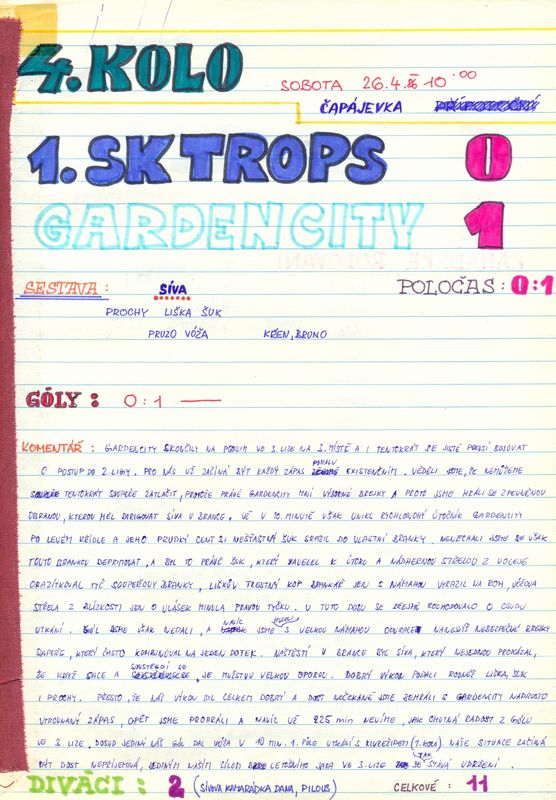 4. KOLO
SOBOTA 26.4.86 10.00
ČAPÁJEVKA
1. SK TROPS 0
GARDEN CITY 1
SESTAVA: SÍVA POLOČAS: 0:1
PROCHY LIŠKA ŠUK
PRUZO VÓŽA KŘEN, BRUNO
GÓLY: 0:1 —
KOMENTÁŘ: GARDENCITY SKONČILY NA PODZIM VE 3. LIZE NA 3. MÍSTĚ A I TENTOKRÁT SE JISTĚ BOJOVAT
O POSTUP DO 2. LIGY. PRO NÁS UŽ ZAČÍNÁ BÝT KAŽDÝ ZÁPAS POMALU EXISTENČNÍM. VĚDĚLI JSME, ŽE NEMŮŽEME
TENTOKRÁT SOUPEŘE ZATLAČIT, PROTOŽE PRÁVĚ GARDENCITY MNÍ VÝBORNÉ BREJKY A PROTO JSME HRÁLI SE ZPEVNĚNOU
OBRANOU, KTEROU MĚL DIRIGOVAT SÍVA V BRANCE. UŽ V 10. MINUTĚ VŠAK UNIKL RYCHLONOHÝ ÚTOČNÍK GARDENCITY
PO LEVÉM KŘÍDLE A JEHO PRUDKÝ CENT SI NEŠŤASTNÝ ŠUK SRAZIL DO VLASTNÍ BRANKY. NENECHALI JSME SE VŠAK
TOUTO BRANKOU DEPRIMOVAT, A BYL TO PRÁVĚ ŠUK, KTERÝ ZAVELEL K ÚTOKU A NÁDHERNOU STŘELOU Z VOLEJE
ORAZÍTKOVAL TYČ SOUPEŘOVY BRANKY, LIŠKŮV TRESTNÝ KOP BRANKÁŘ JEN S NÁMAHOU VYRAZIL NA ROH, VÓŽOVA
STŘELA Z BLÍZKOSTI JEN O VLÁSEK MINULA PRAVOU TYČKU. V TUTO DOBU SE ZŘEJMĚ ROZHODOVALO O OSUDU
UTKÁNÍ. GÓL JSME VŠAK NEDALI, A NAVÍC JSME MUSELI S VELKOU NÁMAHOU ODVRACET NANEJVÝŠ NEBEZPEČNÉ BREJKY
SOUPEŘE, KTERÝ ČASTO KOMBINOVAL NA JEDEN DOTEK. NAŠTĚSTÍ V BRANCE BYL SÍVA, KTERÝ NEJEDNOU PROKÁZAL,
ŽE KDYŽ CHCE A SOUSTŘEDÍ SE, JE MUŽSTVU VELKOU OPOROU. DOBRÝ VÝKON PODALI ROVNĚŽ LIŠKA, ŠUK
I PROCHY. PŘESTO, ŽE NÁŠ VÝKON BYL CELKEM DOBRÝ A DOST NEČEKANĚ JSME SEHRÁLI S GARDENCITY NAPROSTO
VYROVNANÝ ZÁPAS, OPĚT JSME PROHRÁLI A NAVÍC UŽ 225 min NEVÍME, JAK CHUTNÁ RADOST Z GÓLU
VE 3. LIZE, DOSUD JEDINÝ NÁŠ GÓL DAL VÓŽA V 10 MIN. 1. PŮLE UTKÁNÍ S (1. KOLO). NAŠE SITUACE ZAČÍNÁ
BÝT DOST NEPŘÍJEMNÁ, JEDINÝM NAŠÍM CÍLEM LETOŠNÍHO JARA VE 3. LIZE SE TAK STÁVÁ UDRŽENÍ.
DIVÁCI: 2 (SÍVOVA KAMARÁDKA DANA, PILOUS) CELKOVĚ: 11